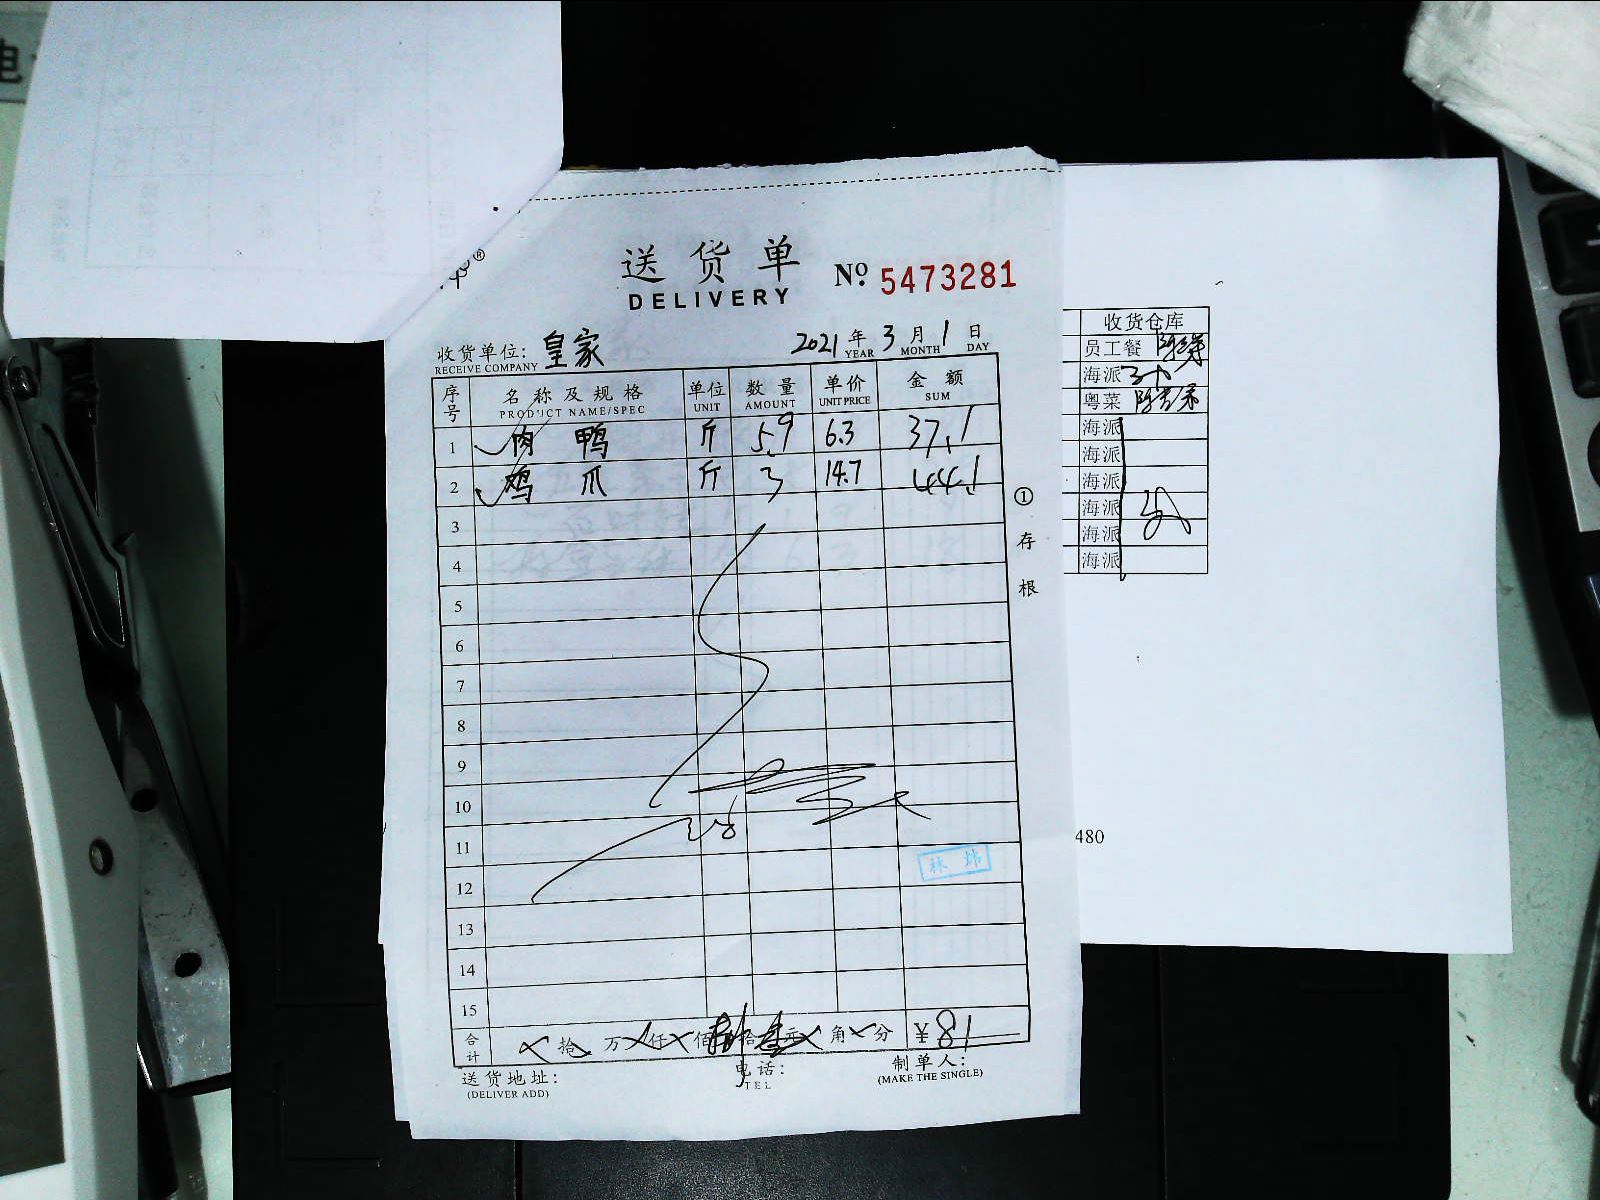 电
®
送货单
DELIVERY
Nº 5473281
收货单位: 皇家
RECEIVE COMPANY
2021 年 3 月 1 日
YEAR MONTH DAY
序号 名称及规格 单位 数量 单价 金额
PRODUCT NAME/SPEC UNIT AMOUNT UNIT PRICE SUM
1 肉鸭 斤 5.9 6.3 37.1
2 鸡爪 斤 3 14.7 44.1
3
4
5
6
7
8
9
10
11
12
13
14
15
合计 拾 万 仟 佰 捌 拾 壹 元 角 分 ¥ 81
送货地址:
(DELIVER ADD)
电话:
TEL
制单人:
(MAKE THE SINGLE)
① 存根
收货仓库
员工餐
海派
粤菜
海派
海派
海派
海派
海派
海派
480